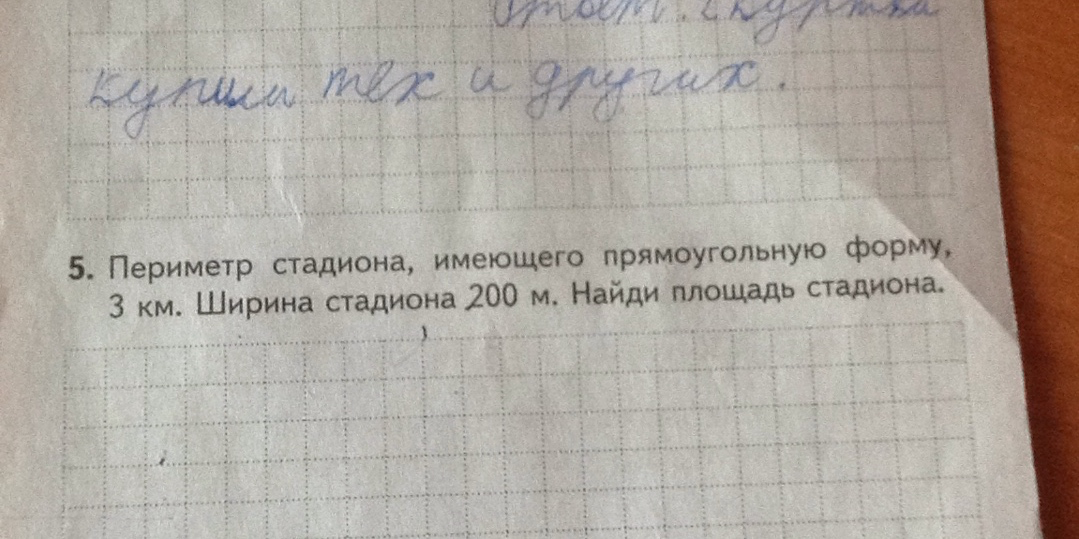 Ответ: куртки
купили тех и других.
5. Периметр стадиона, имеющего прямоугольную форму,
3 км. Ширина стадиона 200 м. Найди площадь стадиона.